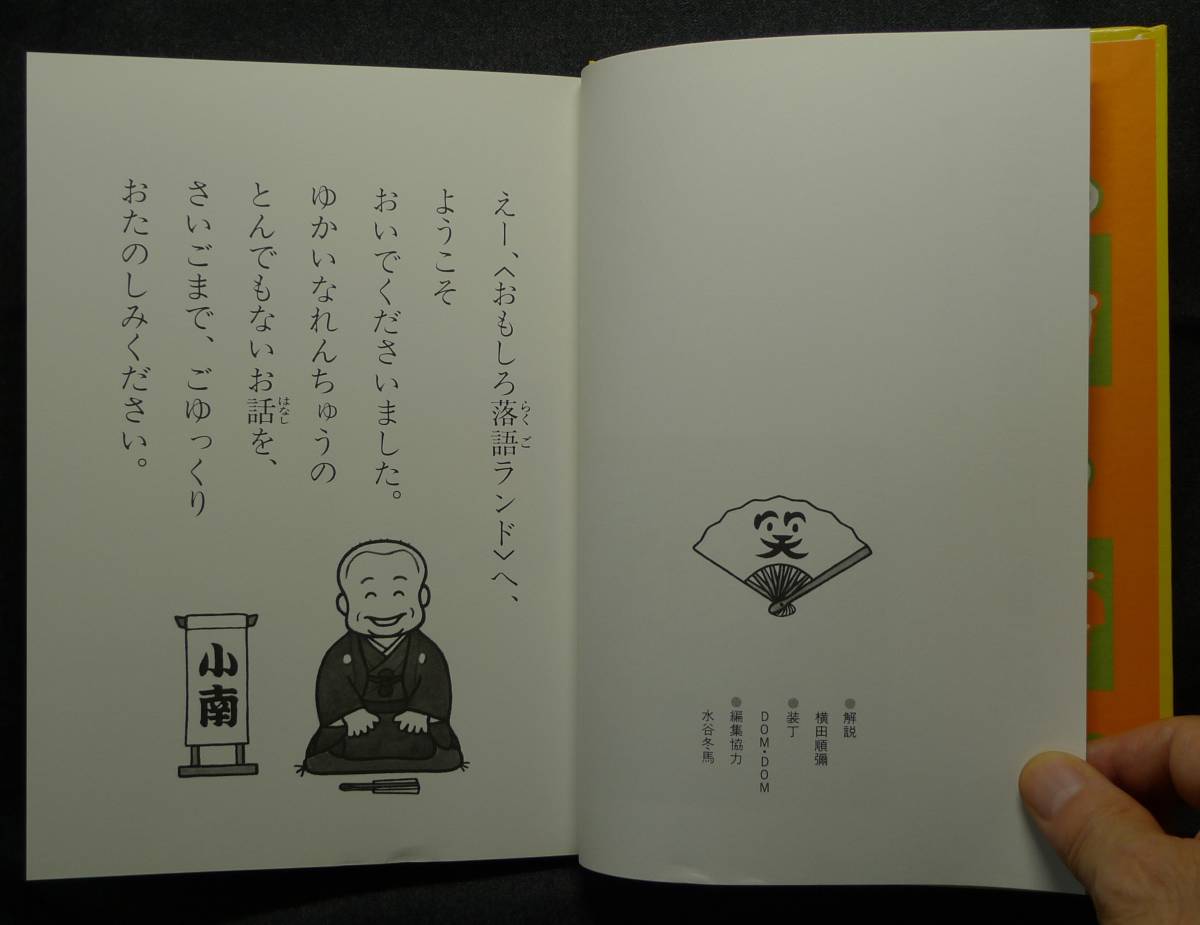 笑
解説
横田順彌
装丁
DOM・DOM
編集協力
水谷冬馬
えー、〈おもしろ落語ランド〉へ、
らくご
ようこそ
おいでくださいました。
ゆかいなれんちゅうの
とんでもないお話を、
はなし
さいごまで、ごゆっくり
おたのしみください。
小南